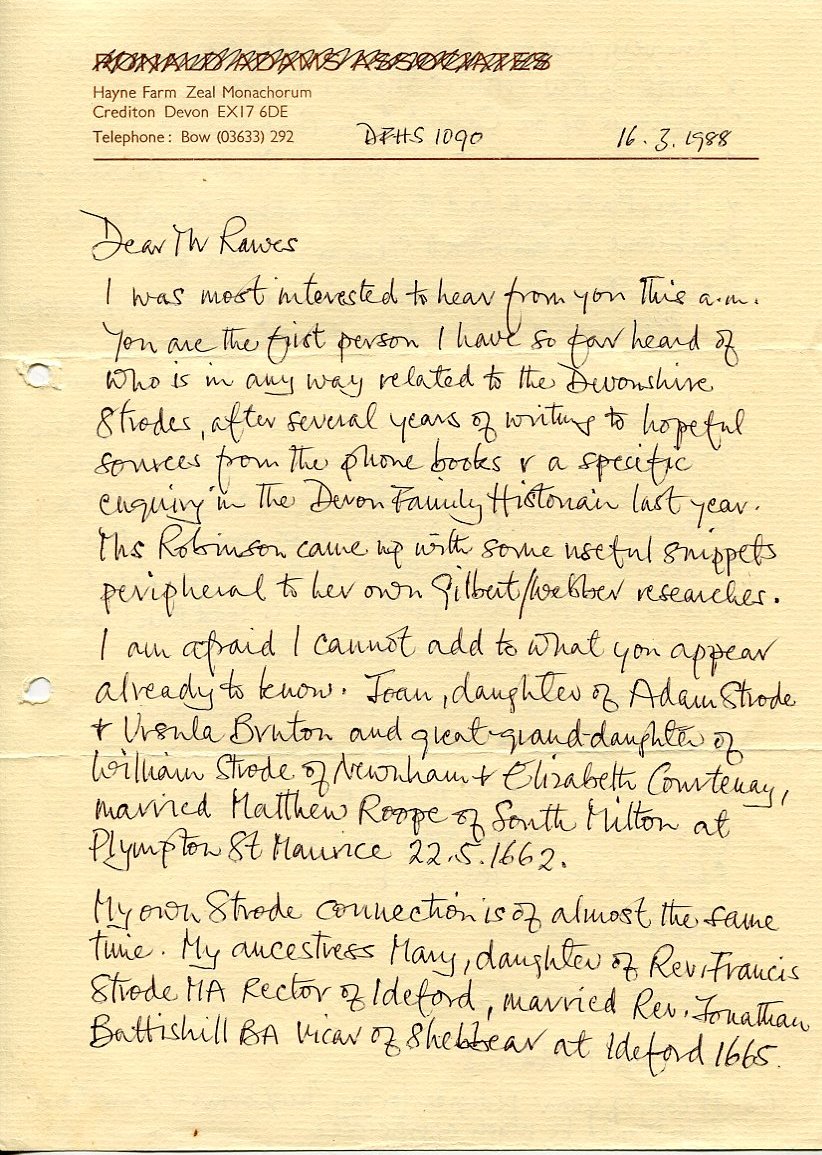 RONALD ADAMS ASSOCIATES
Hayne Farm Zeal Monachorum
Crediton Devon EX17 6DE
Telephone: Bow (03633) 292 DFHS 1090 16.3.1988
Dear Mr Rawes
I was most interested to hear from you this a.m.
You are the first person I have so far heard of
who is in any way related to the Devonshire
Strodes, after several years of writing to hopeful
sources from the phone books & a specific
enquiry in the Devon Family Historian last year.
Mrs Robinson came up with some useful snippets
peripheral to her own Gilbert/Webber researches.
I am afraid I cannot add to what you appear
already to know. Joan, daughter of Adam Strode
+ Ursula Bruton and great-grand-daughter of
William Strode of Newnham + Elizabeth Courtenay,
married Matthew Roope of South Milton at
Plympton St Maurice 22.5.1662.
My own Strode connection is of almost the same
time. My ancestress Mary, daughter of Rev. Francis
Strode MA Rector of Ideford, married Rev. Jonathan
Battishill BA Vicar of Shebbear at Ideford 1665.